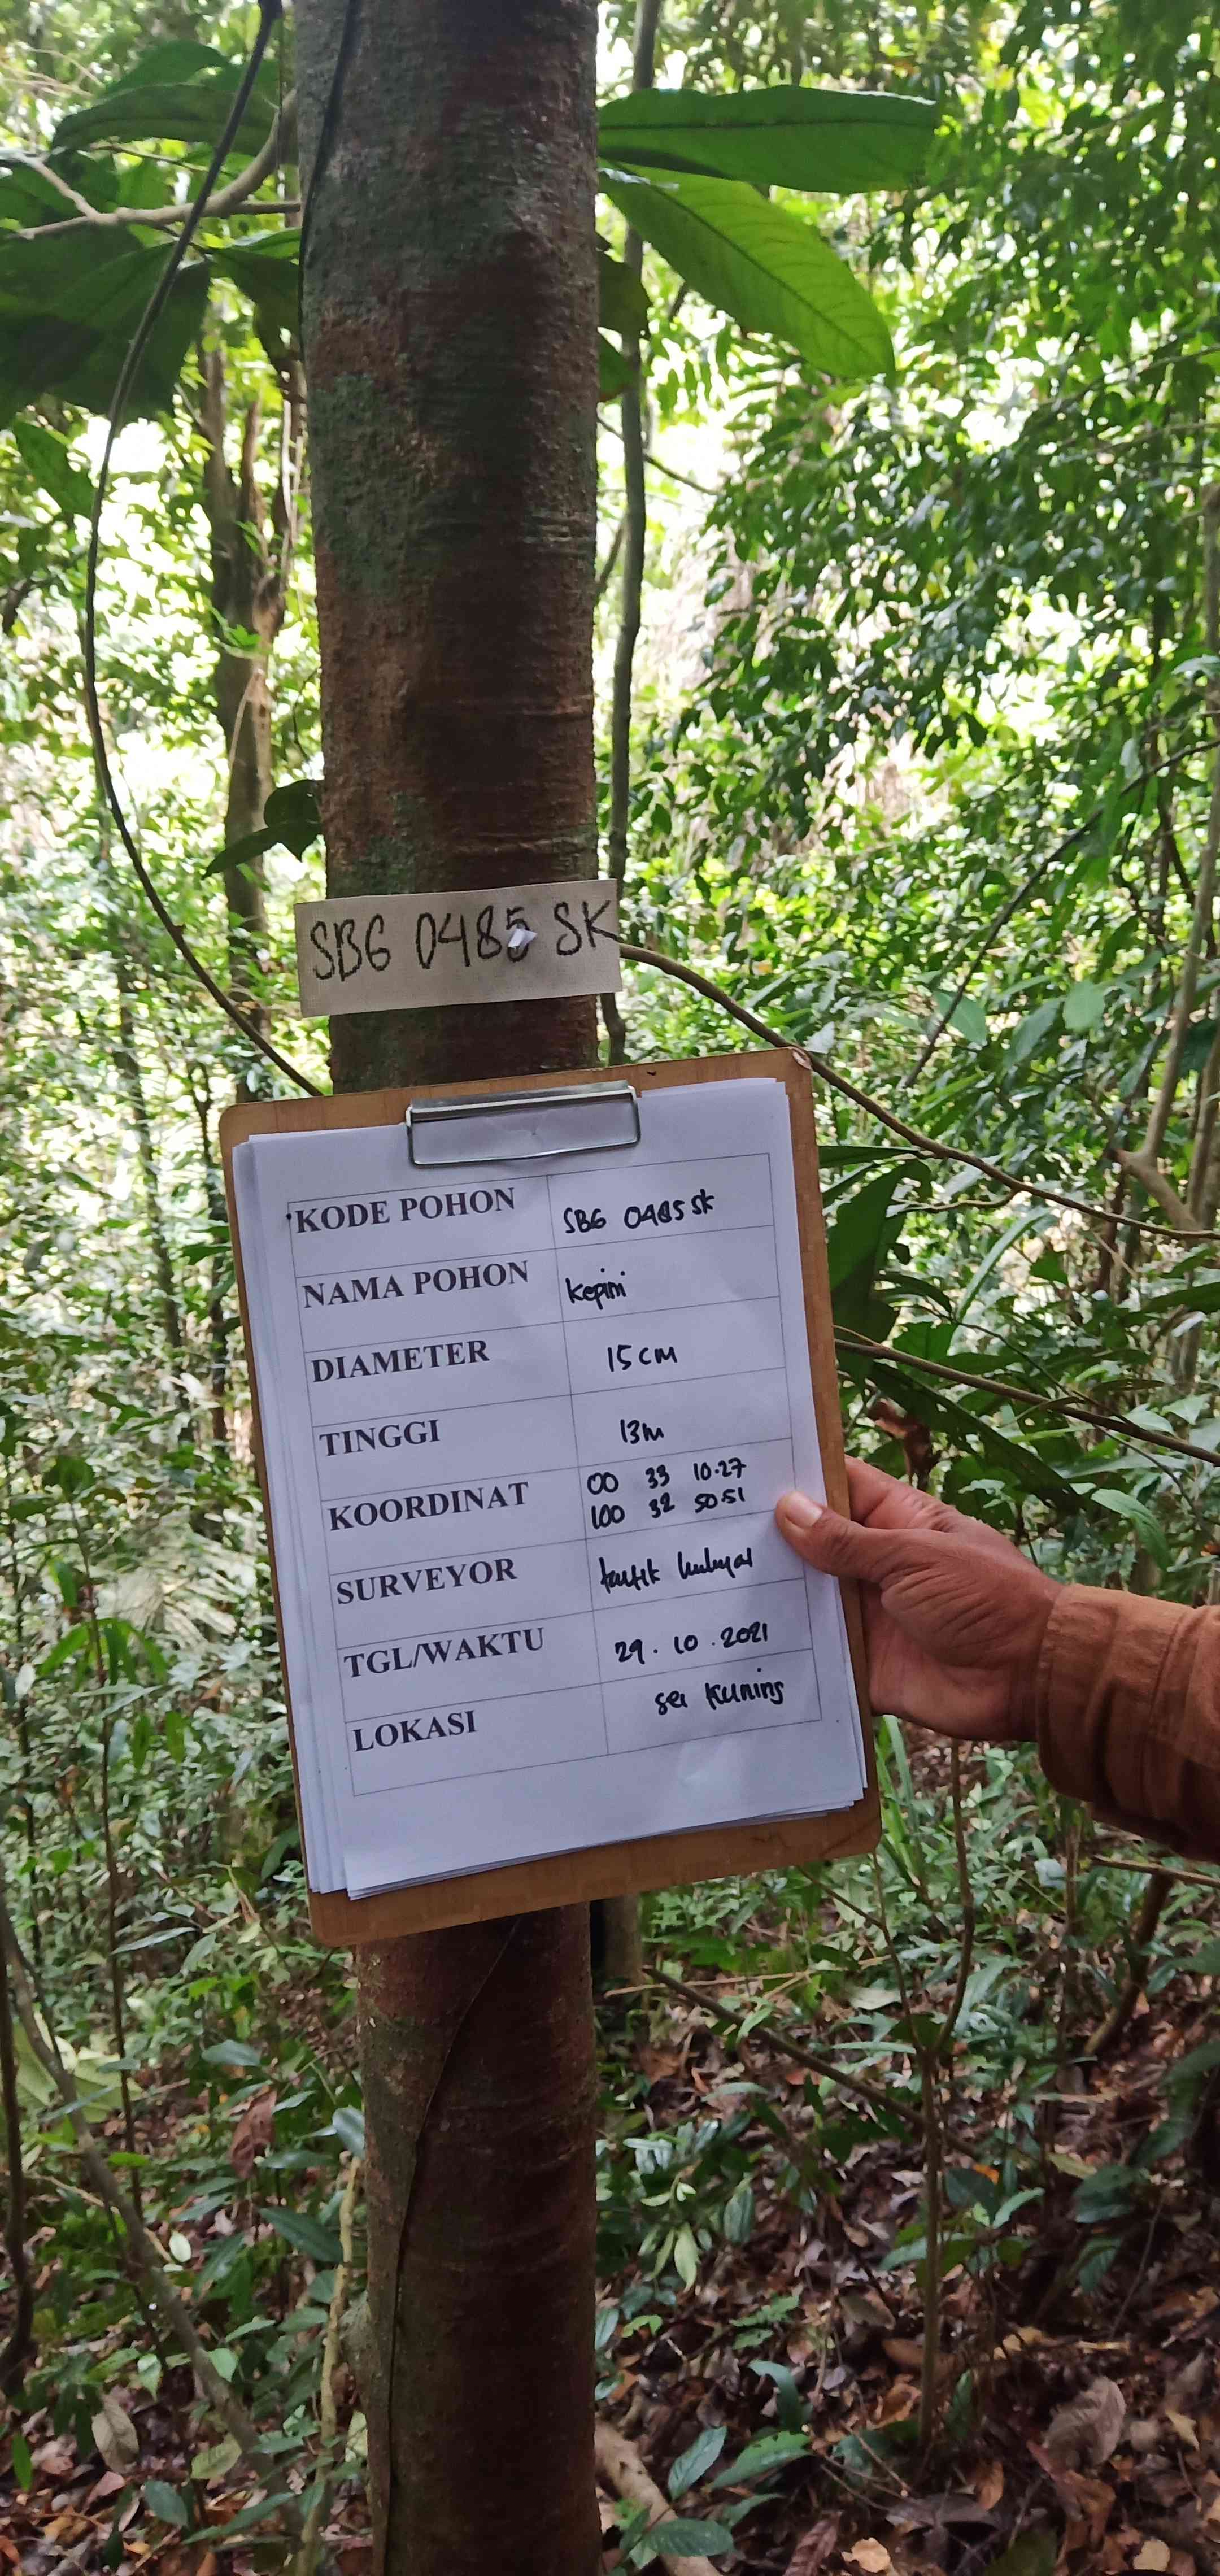 SBG 0485 SK
KODE POHON SBG 0485 SK
NAMA POHON kepini
DIAMETER 15 CM
TINGGI 13 m
KOORDINAT 00 33 10.27
100 32 50.51
SURVEYOR taufik
TGL/WAKTU 29.10.2021
LOKASI sei Kuning